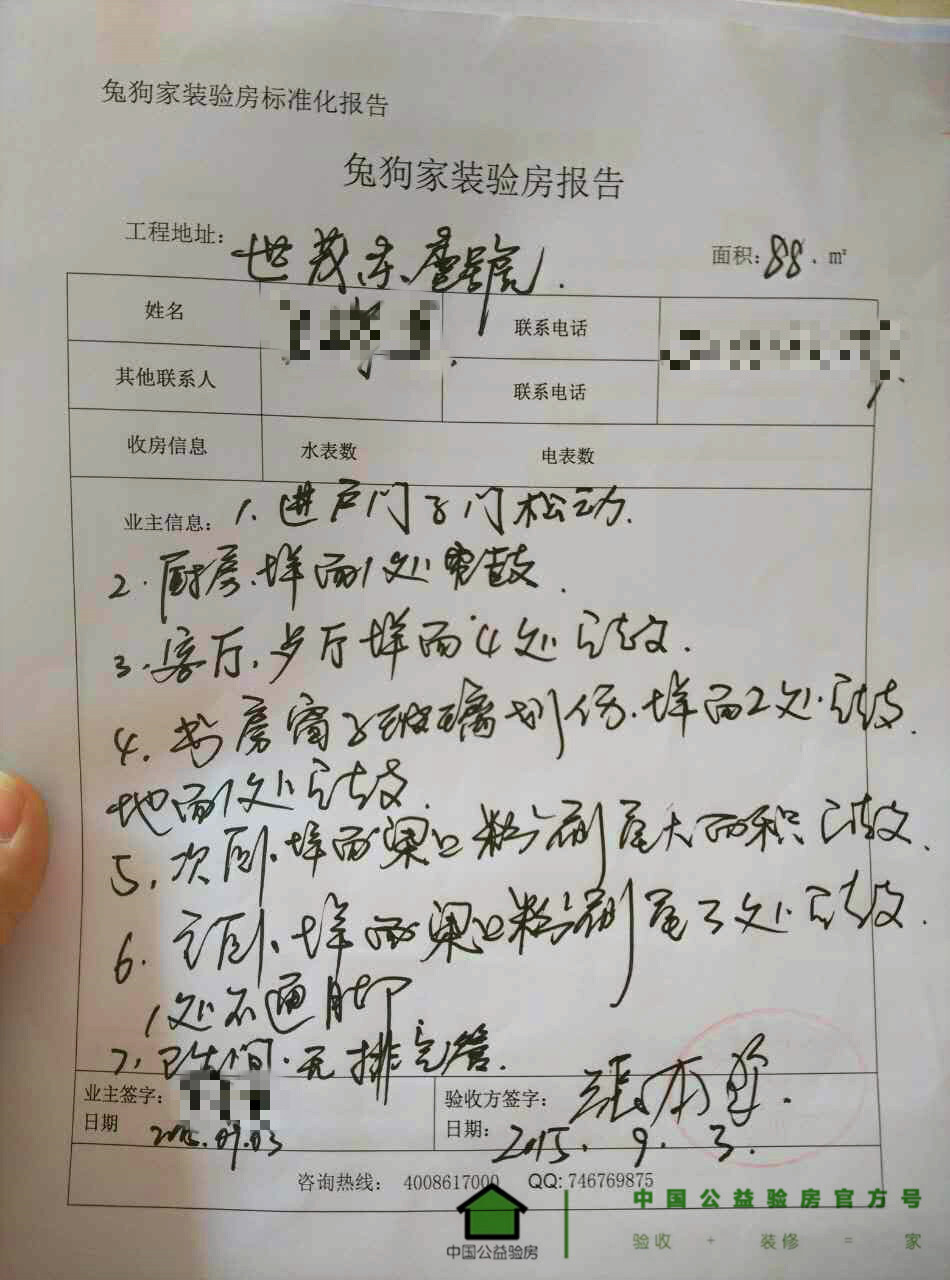 兔狗家装验房标准化报告
兔狗家装验房报告
工程地址: 世茂
面积: 88. m²
姓名 联系电话
其他联系人 联系电话
收房信息 水表数 电表数
业主信息: 1. 进户门子门松动.
2. 厨房.墙面1处空鼓.
3. 客厅.步厅墙面4处空鼓.
4. 书房窗子玻璃划伤.墙面2处空鼓.
地面1处空鼓.
5. 次卧.墙面梁口粉刷层大面积空鼓.
6. 主卧.墙面梁口粉刷层3处空鼓.
1处不通
7. 卫生间.无排气管.
业主签字: 验收方签字:
日期 2015.09.03 日期: 2015. 9. 3.
咨询热线: 4008617000 QQ: 746769875
中国公益验房
中国公益验房官方号
验收 + 装修 = 家